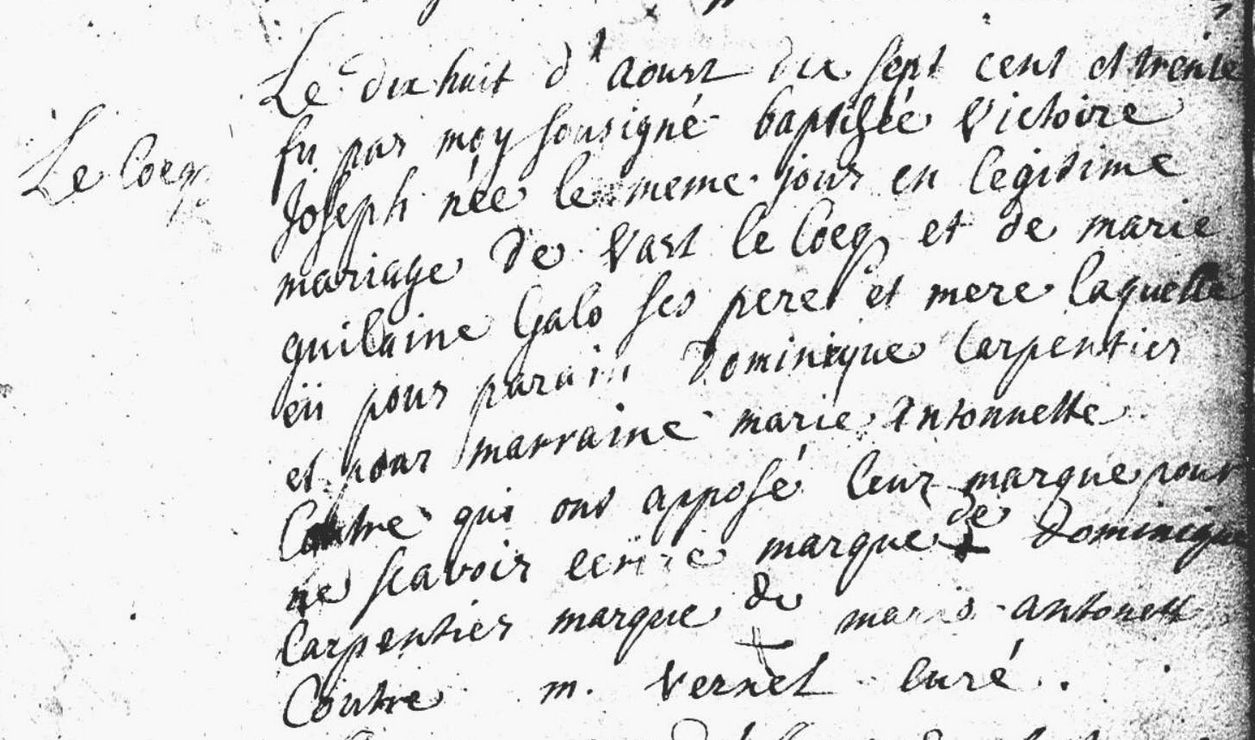 Le dix huit d'aoust dix sept cent et trente
fu par moy sousigné baptisée Victoire
Le Coeq
Joseph née le meme jour en legitime
mariage de Vast le Coeq et de marie
guilaine Galo ses pere et mere laquelle
eü pour parain Dominique Carpentier
et pour marraine marie Antonnette
Coutre qui ont apposé leur marque pour
ne scavoir ecrire marque de Dominique
Carpentier marque de marie antonett
Coutre m. Vernel curé.